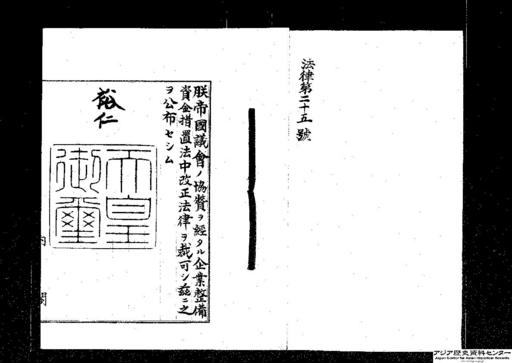 法律第二十五號
朕帝國議會ノ協贊ヲ經タル企業整備
資金措置法中改正法律ヲ裁可シ茲ニ之
ヲ公布セシム
裕仁
天皇
御璽
内閣
アジア歴史資料センター
Japan Center for Asian Historical Records